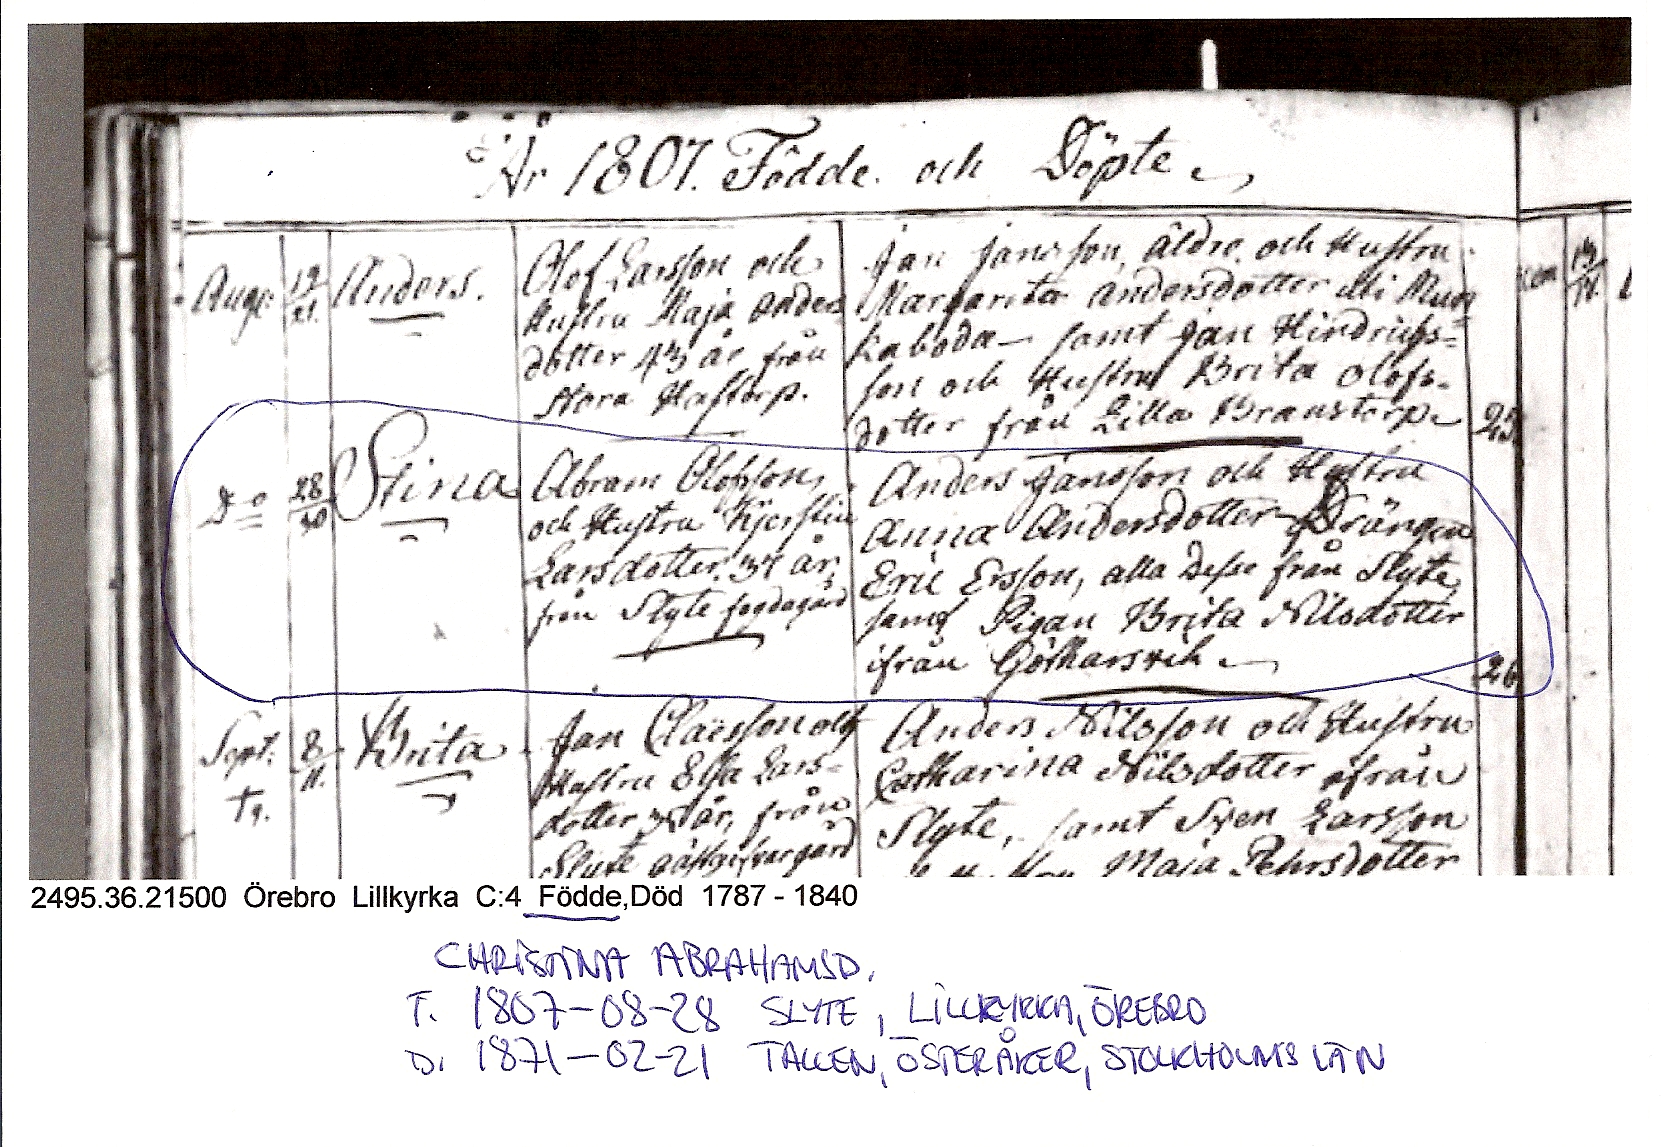 År 1807. Födde. och Döpte
Aug: 19/21. Anders.
Olof Larsson och
Hustru Maja Anders
dotter 43 år från
Norra Hastorp.
Jan Jansson, äldre, och Hustru
Margarita Andersdotter i Mun
kaboda samt Jan Hindrichs=
son och Hustru Brita Olofs-
dotter från Lilla Branstorp
25
Do 28/30 Stina
Abram Olofsson,
och Hustru Kjerstin
Larsdotter, 34 år,
från Slyte fogdegård
Anders Jansson och Hustru
Anna Andersdotter Drängen
Eric Ersson, alla desse från Slyte,
samt Pigan Brita Nilsdotter
ifrån Götharsvik
26
Sept. 8/11. Brita
Jan Claesson och
Hustru Elsa Lars-
dotter år, från
Slyte
Anders Nilsson och Hustru
Catharina Nilsdotter ifrån
Slyte, samt Sven Larsson
Maja Pehrsdotter
2495.36.21500 Örebro Lillkyrka C:4 Födde,Död 1787 - 1840
CHRISTINA ABRAHAMSD.
F. 1807-08-28 SLYTE, LILLKYRKA, ÖREBRO
D. 1871-02-21 TALLEN, ÖSTERÅKER, STOCKHOLMS LÄN